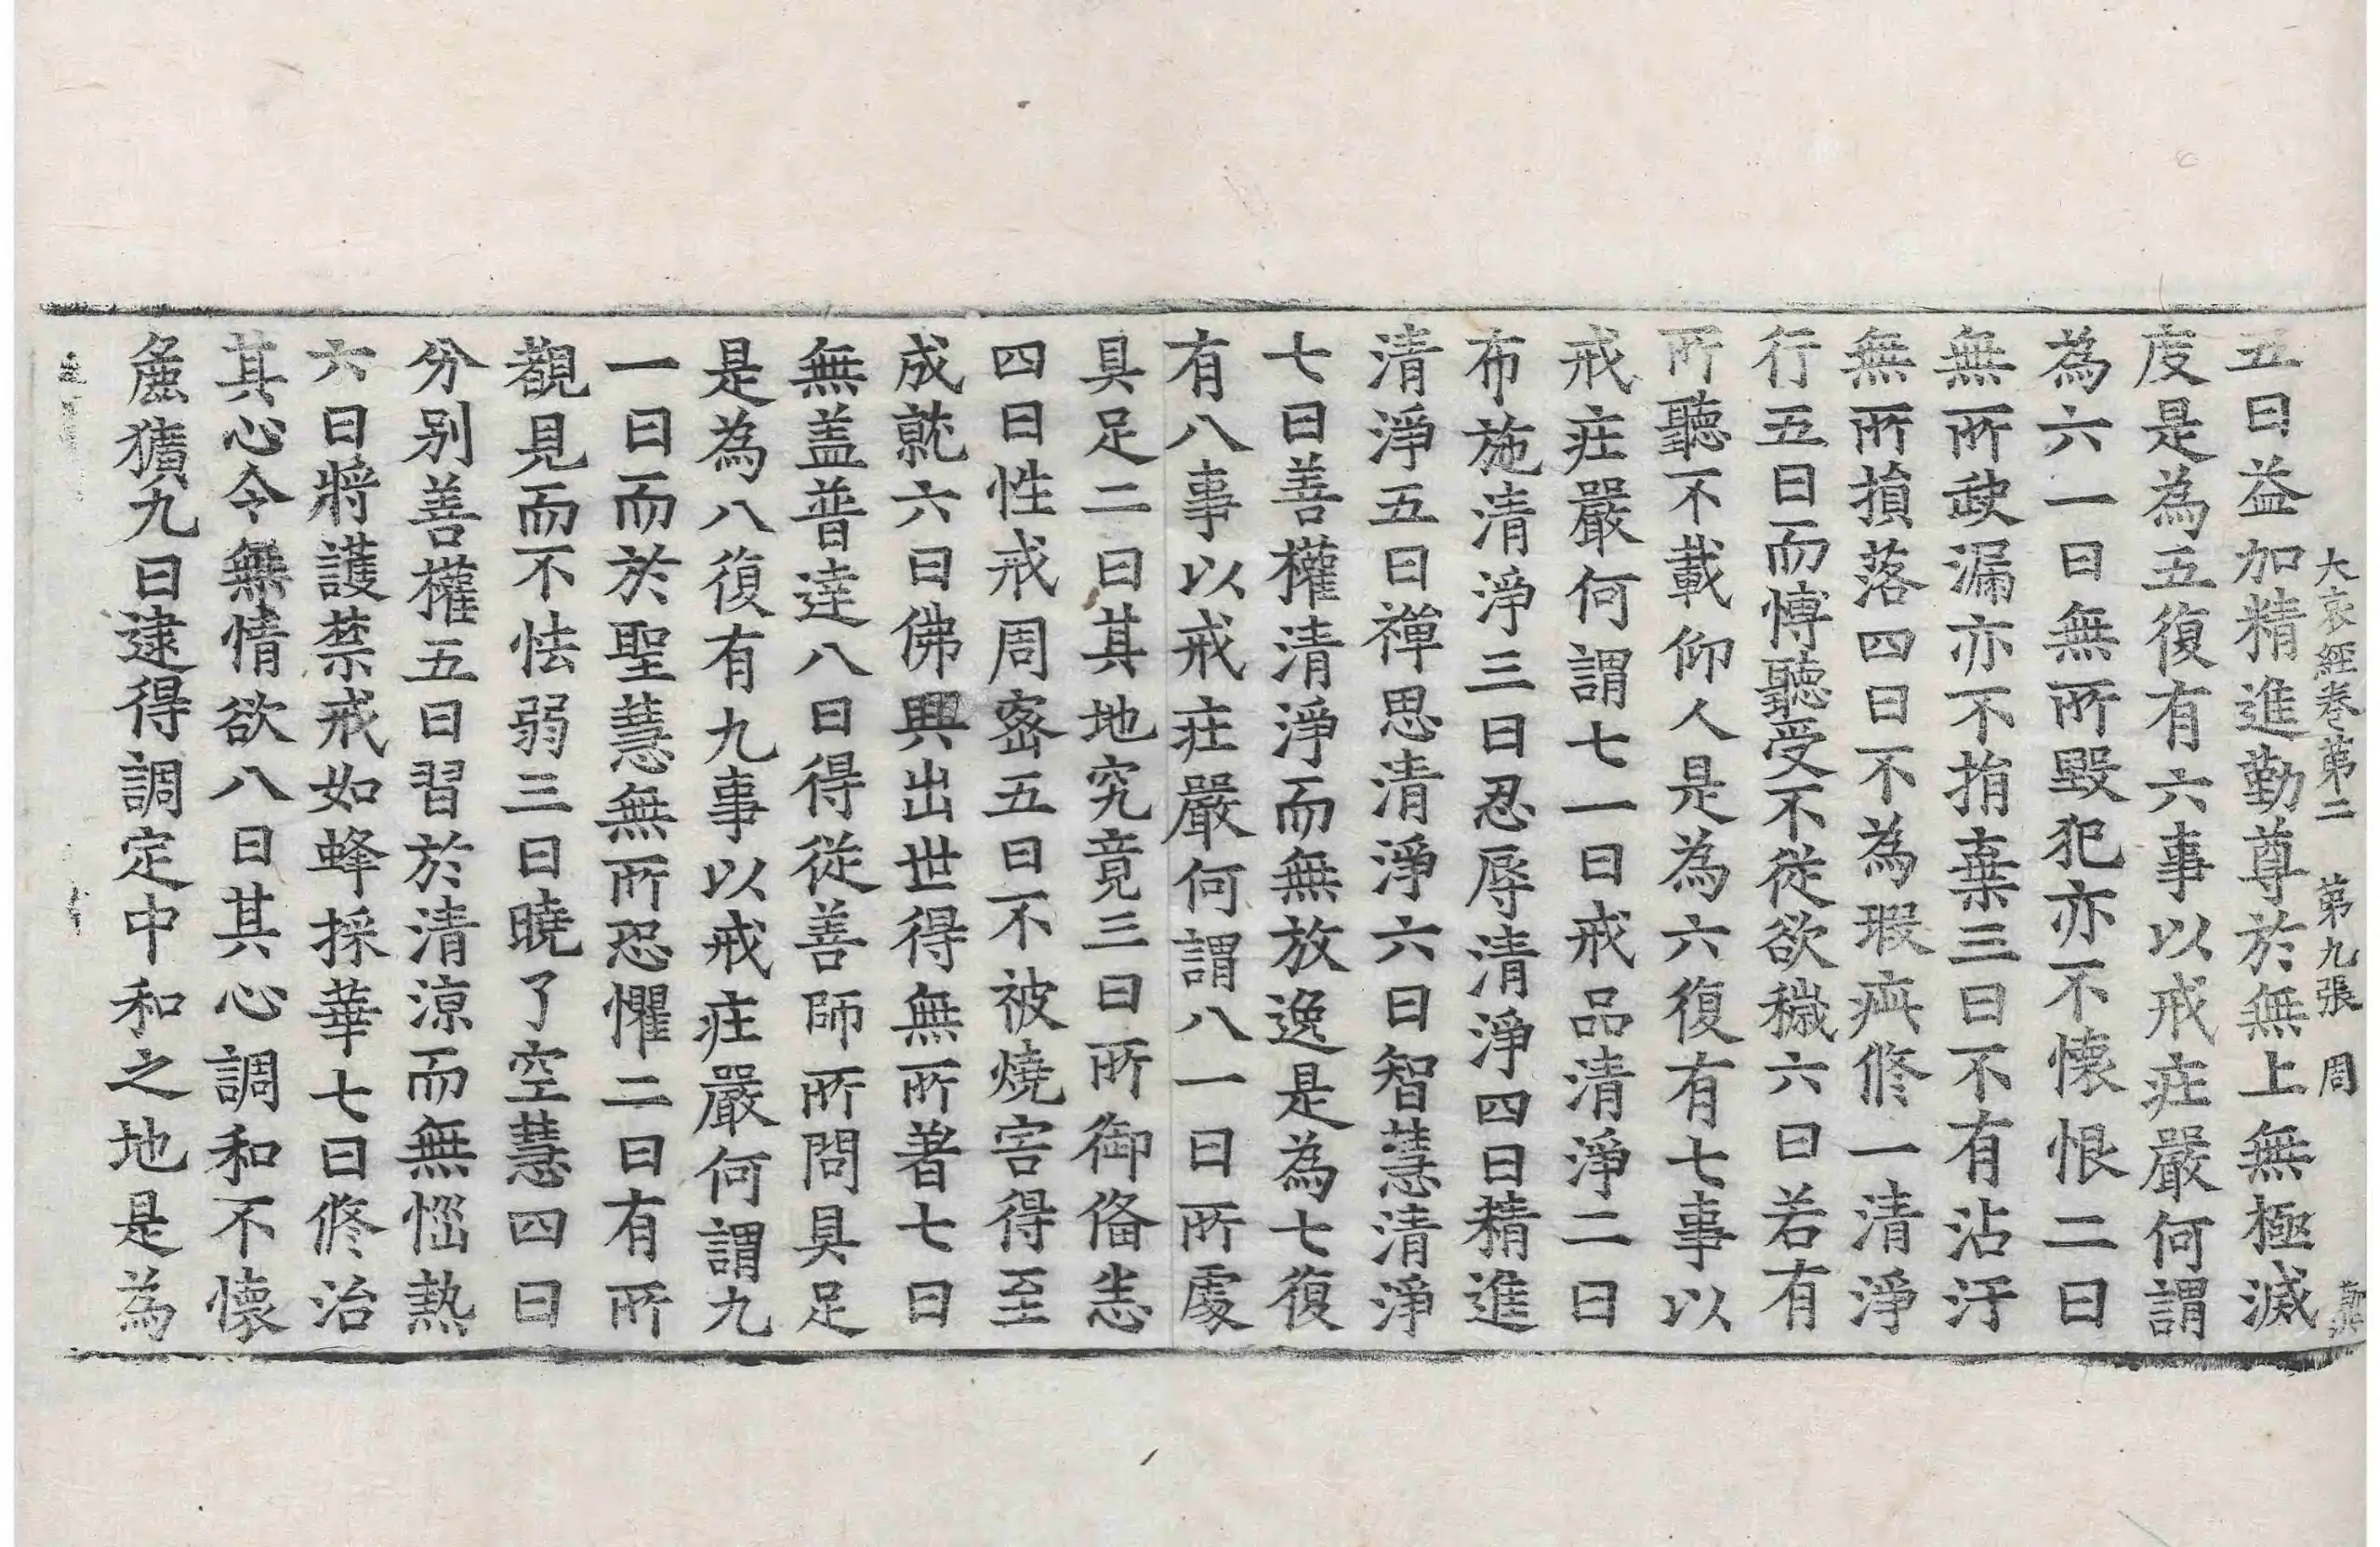 大哀經卷第二 第九張 周
五曰益加精進勤尊於無上無極滅
度是為五復有六事以戒莊嚴何謂
為六一曰無所毀犯亦不懷恨二曰
無所缺漏亦不捐棄三曰不有沾汙
無所損落四曰不為瑕疵修一清淨
行五曰而愽聽受不從欲穢六曰若有
所聽不載仰人是為六復有七事以
戒莊嚴何謂七一曰戒品清淨二曰
布施清淨三曰忍辱清淨四曰精進
清淨五曰禪思清淨六曰智慧清淨
七曰善權清淨而無放逸是為七復
有八事以戒莊嚴何謂八一曰所處
具足二曰其地究竟三曰所御俻恙
四曰性戒周密五曰不被燒害得至
成就六曰佛興出世得無所著七曰
無盖普達八曰得從善師所問具足
是為八復有九事以戒莊嚴何謂九
一曰而於聖慧無所恐懼二曰有所
覩見而不怯弱三曰曉了空慧四曰
分別善權五曰習於清涼而無惱熱
六曰將護禁戒如蜂採華七曰修治
其心令無情欲八曰其心調和不懷
麁獷九曰逮得調定中和之地是為